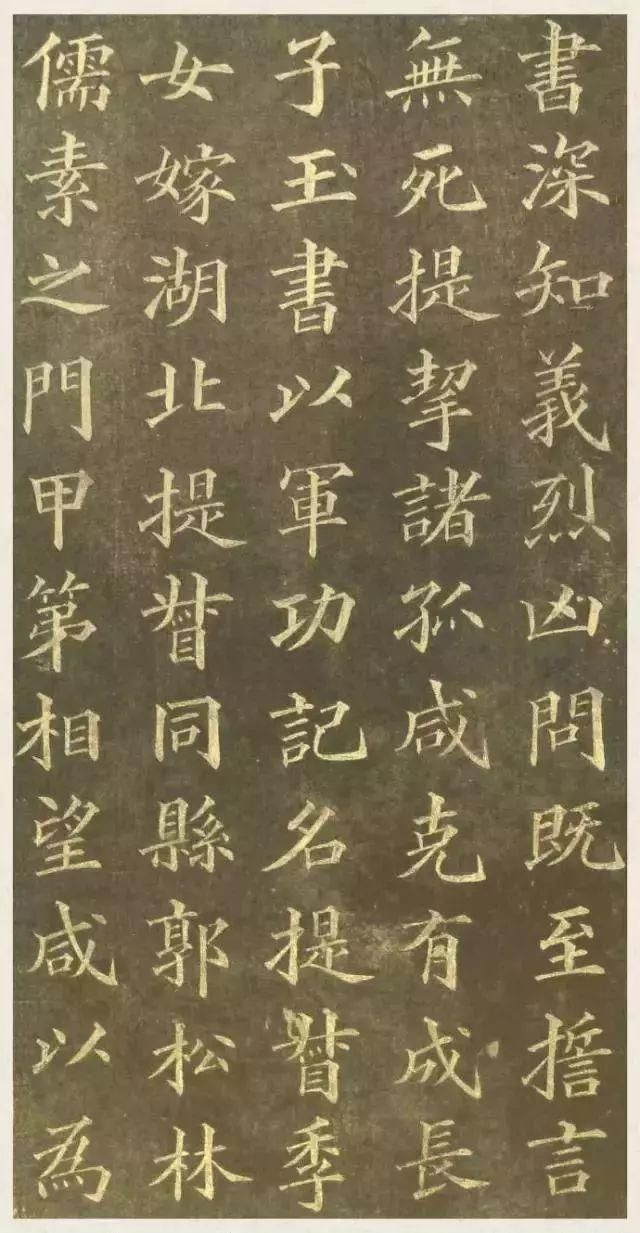 書深知義烈凶問既至捂言
無死提挈諸孤咸克有成長
子玉書以軍功記名提督季
女嫁湖北提督同縣郭松林
儒素之門甲第相望咸以為